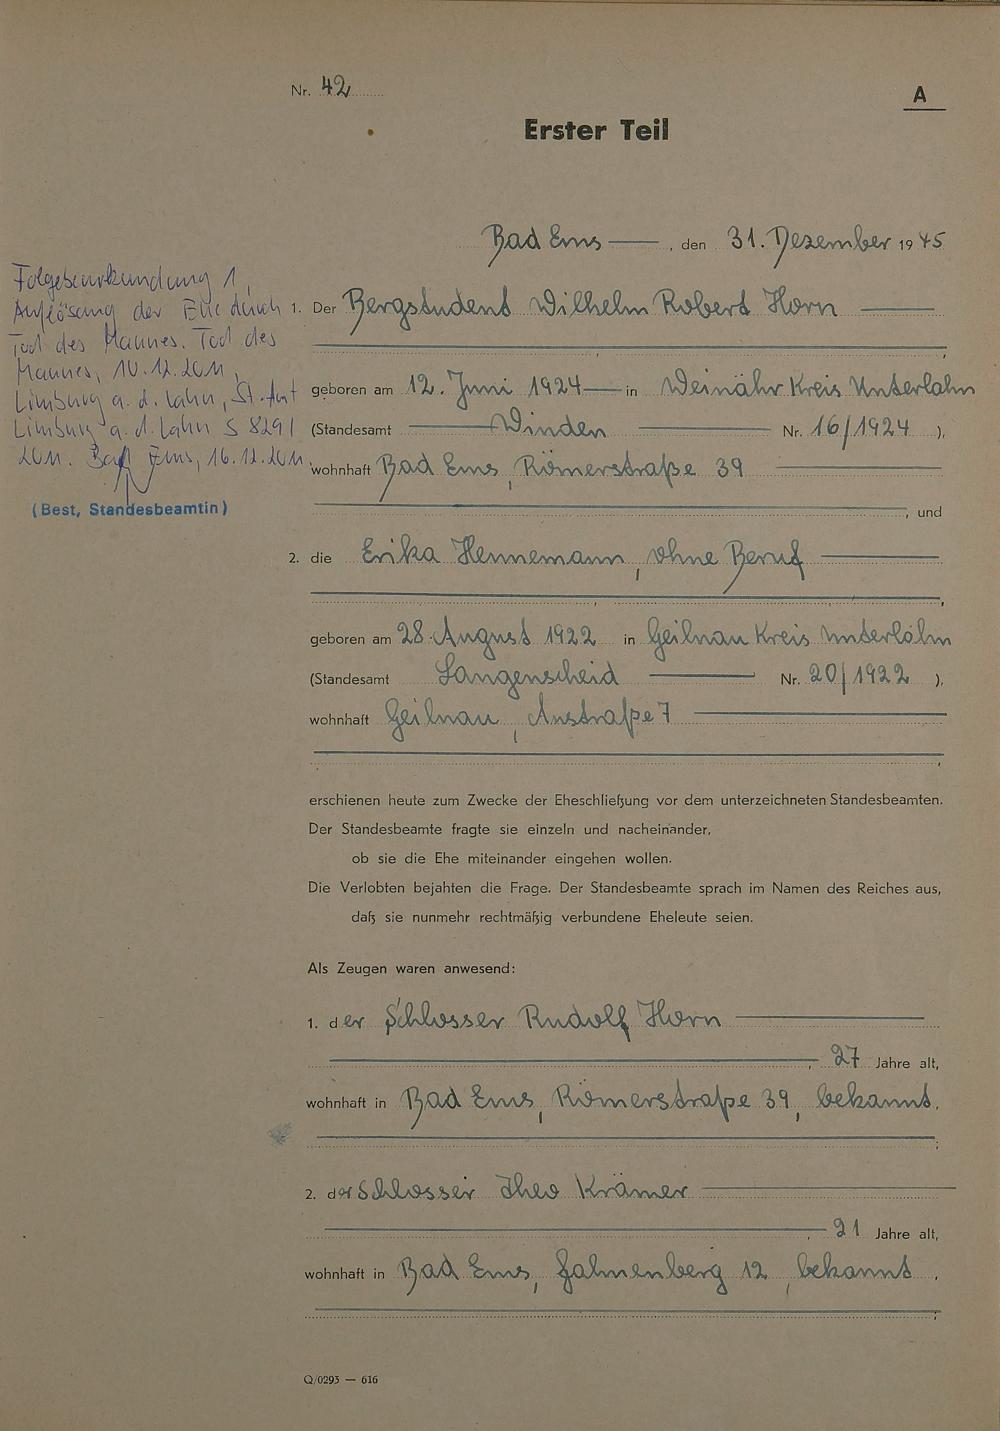 Nr. 42
A
Erster Teil
Bad Ems —, den 31. Dezember 1945
Folgebeurkundung 1,
Auflösung der Ehe durch
Tod des Mannes. Tod des
Mannes, 10.12.2011,
Limburg a. d. Lahn, St.Amt
Limburg a. d. Lahn S 829/
2011. Bad Ems, 16.12.2011
(Best, Standesbeamtin)
1. Der Bergstudent Wilhelm Robert Horn —
,
geboren am 12. Juni 1924 — in Weinähr Kreis Unterlahn
(Standesamt — Winden — Nr. 16/1924 ),
wohnhaft Bad Ems, Römerstraße 39 —
, und
2. die Erika Hennemann, ohne Beruf —
,
geboren am 28. August 1922 in Geilnau Kreis Unterlahn
(Standesamt Langenscheid — Nr. 20/1922 ),
wohnhaft Geilnau, 7 —
,
erschienen heute zum Zwecke der Eheschließung vor dem unterzeichneten Standesbeamten.
Der Standesbeamte fragte sie einzeln und nacheinander,
ob sie die Ehe miteinander eingehen wollen.
Die Verlobten bejahten die Frage. Der Standesbeamte sprach im Namen des Reiches aus,
daß sie nunmehr rechtmäßig verbundene Eheleute seien.
Als Zeugen waren anwesend:
1. der Schlosser Rudolf Horn —
— 27 Jahre alt,
wohnhaft in Bad Ems, Römerstraße 39, bekannt,
;
2. der Schlosser Theo Krämer —
— 21 Jahre alt,
wohnhaft in Bad Ems, 12, bekannt,
;
Q/0293 — 616